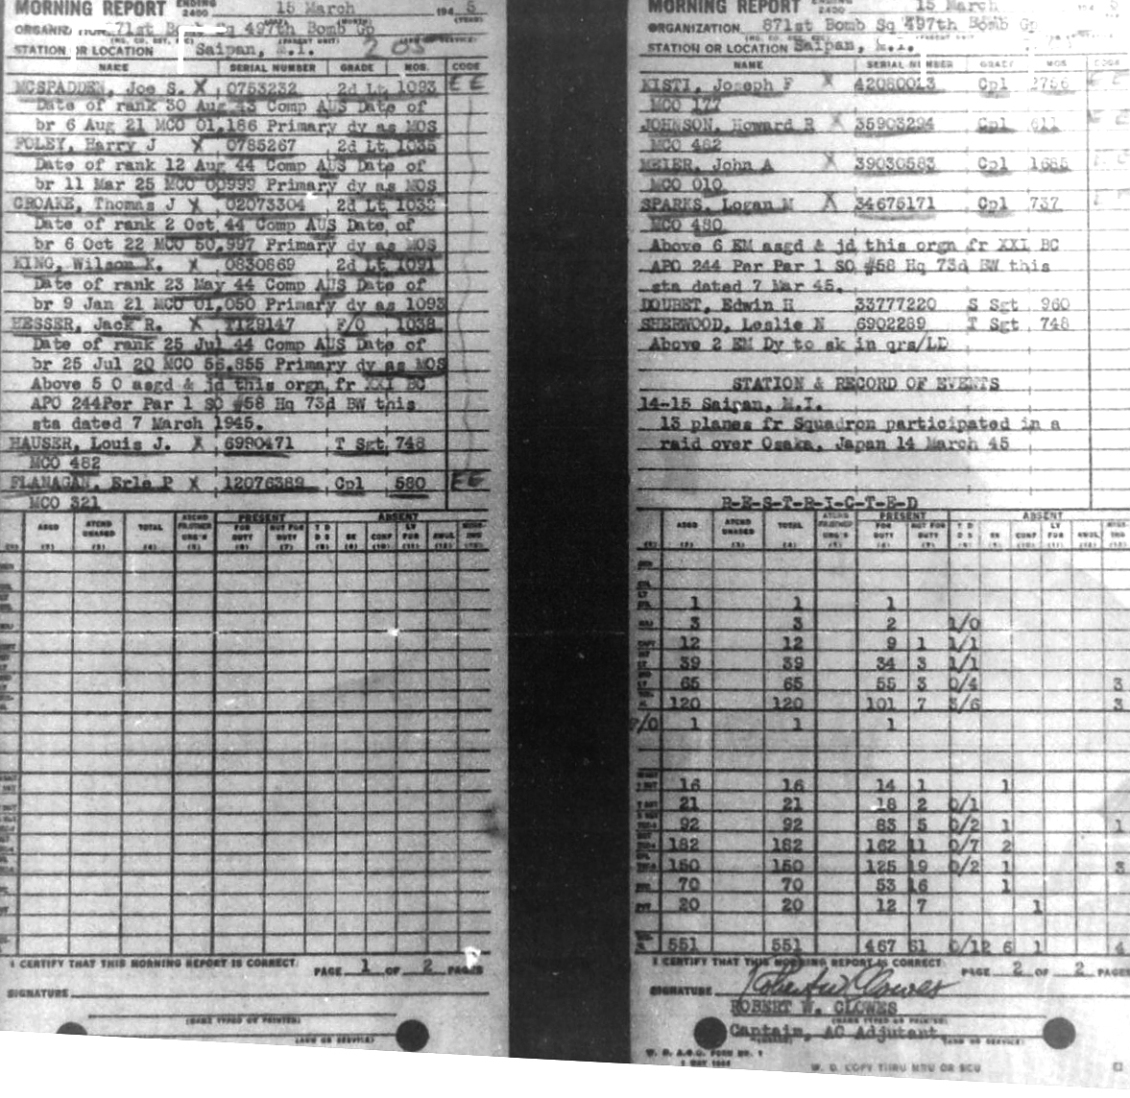 MORNING REPORT ENDING 2400 15 March 194 5
ORGANIZATION 871st Bomb Sq 497th Bomb Gp
STATION OR LOCATION Saipan, M.I.
NAME SERIAL NUMBER GRADE MOS. CODE
MCSPADDEN, Joe S. X 0753232 2d Lt 1093 E E
Date of rank 30 Aug 43 Comp AUS Date of
br 6 Aug 21 MCO 01,186 Primary dy as MOS
FOLEY, Harry J X 0785267 2d Lt 1035
Date of rank 12 Aug 44 Comp AUS Date of
br 11 Mar 25 MCO 00999 Primary dy as MOS
CROAKE, Thomas J X 02073304 2d Lt 1038
Date of rank 2 Oct 44 Comp AUS Date of
br 6 Oct 22 MCO 50,997 Primary dy as MOS
KING, Wilson K. X 0830869 2d Lt 1091
Date of rank 23 May 44 Comp AUS Date of
br 9 Jan 21 MCO 01,050 Primary dy as 1093
HESSER, Jack R. X T129147 F/O 1038
Date of rank 25 Jul 44 Comp AUS Date of
br 25 Jul 20 MCO 55,855 Primary dy as MOS
Above 5 O asgd & jd this orgn fr XXI BC
APO 244Per Par 1 SO #58 Hq 73d BW this
sta dated 7 March 1945.
HAUSER, Louis J. X 6990471 T Sgt 748
MCO 482
FLANAGAN, Erle P X 12076389 Cpl 580 EE
MCO 321
ASGD ATCHD UNASGD TOTAL PRESENT ABSENT
FOR DUTY NOT FOR DUTY T D D S SK CONF LV FUR AWOL
I CERTIFY THAT THIS MORNING REPORT IS CORRECT. PAGE 1 OF 2 PAGES
SIGNATURE
(NAME TYPED OR PRINTED)
(ARM OR SERVICE)
MORNING REPORT ENDING 2400 15 March
ORGANIZATION 871st Bomb Sq 497th Bomb Gp
STATION OR LOCATION Saipan, M.I.
NAME SERIAL NUMBER GRADE MOS CODE
KISTI, Joseph F X 42080013 Cpl 2756 E E
MCO 177
JOHNSON, Howard R X 35903294 Cpl 611
MCO 482
MEIER, John A X 39030583 Cpl 1685
MCO 010
SPARKS, Logan M X 34675171 Cpl 737
MCO 480
Above 6 EM asgd & jd this orgn fr XXI BC
APO 244 Per Par 1 SO #58 Hq 73d BW this
sta dated 7 Mar 45.
DOUBET, Edwin H 33777220 S Sgt 960
SHERWOOD, Leslie N 6902289 T Sgt 748
Above 2 EM Dy to sk in qrs/LD
STATION & RECORD OF EVENTS
14-15 Saipan, M.I.
13 planes fr Squadron participated in a
raid over Osaka, Japan 14 March 45
R-E-S-T-R-I-C-T-E-D
ASGD ATCHD UNASGD TOTAL PRESENT ABSENT
FOR DUTY NOT FOR DUTY T D D S SK CONF LV FUR AWOL
1 1 1
3 3 2 1/0
12 12 9 1 1/1
39 39 34 3 1/1
65 65 55 3 0/4 3
120 120 101 7 3/6 3
F/O 1 1 1
16 16 14 1 1
21 21 18 2 0/1
92 92 83 5 0/2 1 1
182 182 162 11 0/7 2
150 150 125 19 0/2 1 3
70 70 53 16 1
20 20 12 7 1
551 551 467 61 0/12 6 1 4
I CERTIFY THAT THIS MORNING REPORT IS CORRECT. PAGE 2 OF 2 PAGES
SIGNATURE Robert W. Clowes
ROBERT W. CLOWES
(NAME TYPED OR PRINTED)
Captain, AC Adjutant
(ARM OR SERVICE)
W. D. A.G.O. FORM NO. 1
W. D. COPY THRU MRU OR SCU